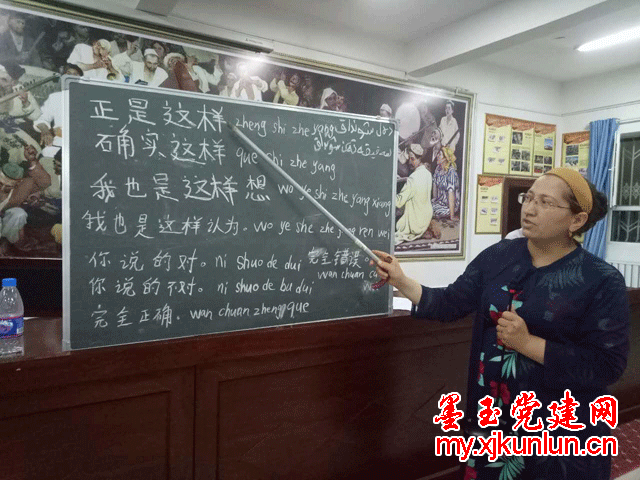 正是这样 zheng shi zhe yang
确实这样 que shi zhe yang
我也是这样想 wo ye shi zhe yang xiang
我也是这样认为. wo ye she zhe yang ren wei
你说的对. ni shuo de dui 完全错误.
你说的不对. ni shuo de bu dui wan chuan cu
完全正确. wan chuan zheng que
墨玉党建网
my.xjkunlun.cn